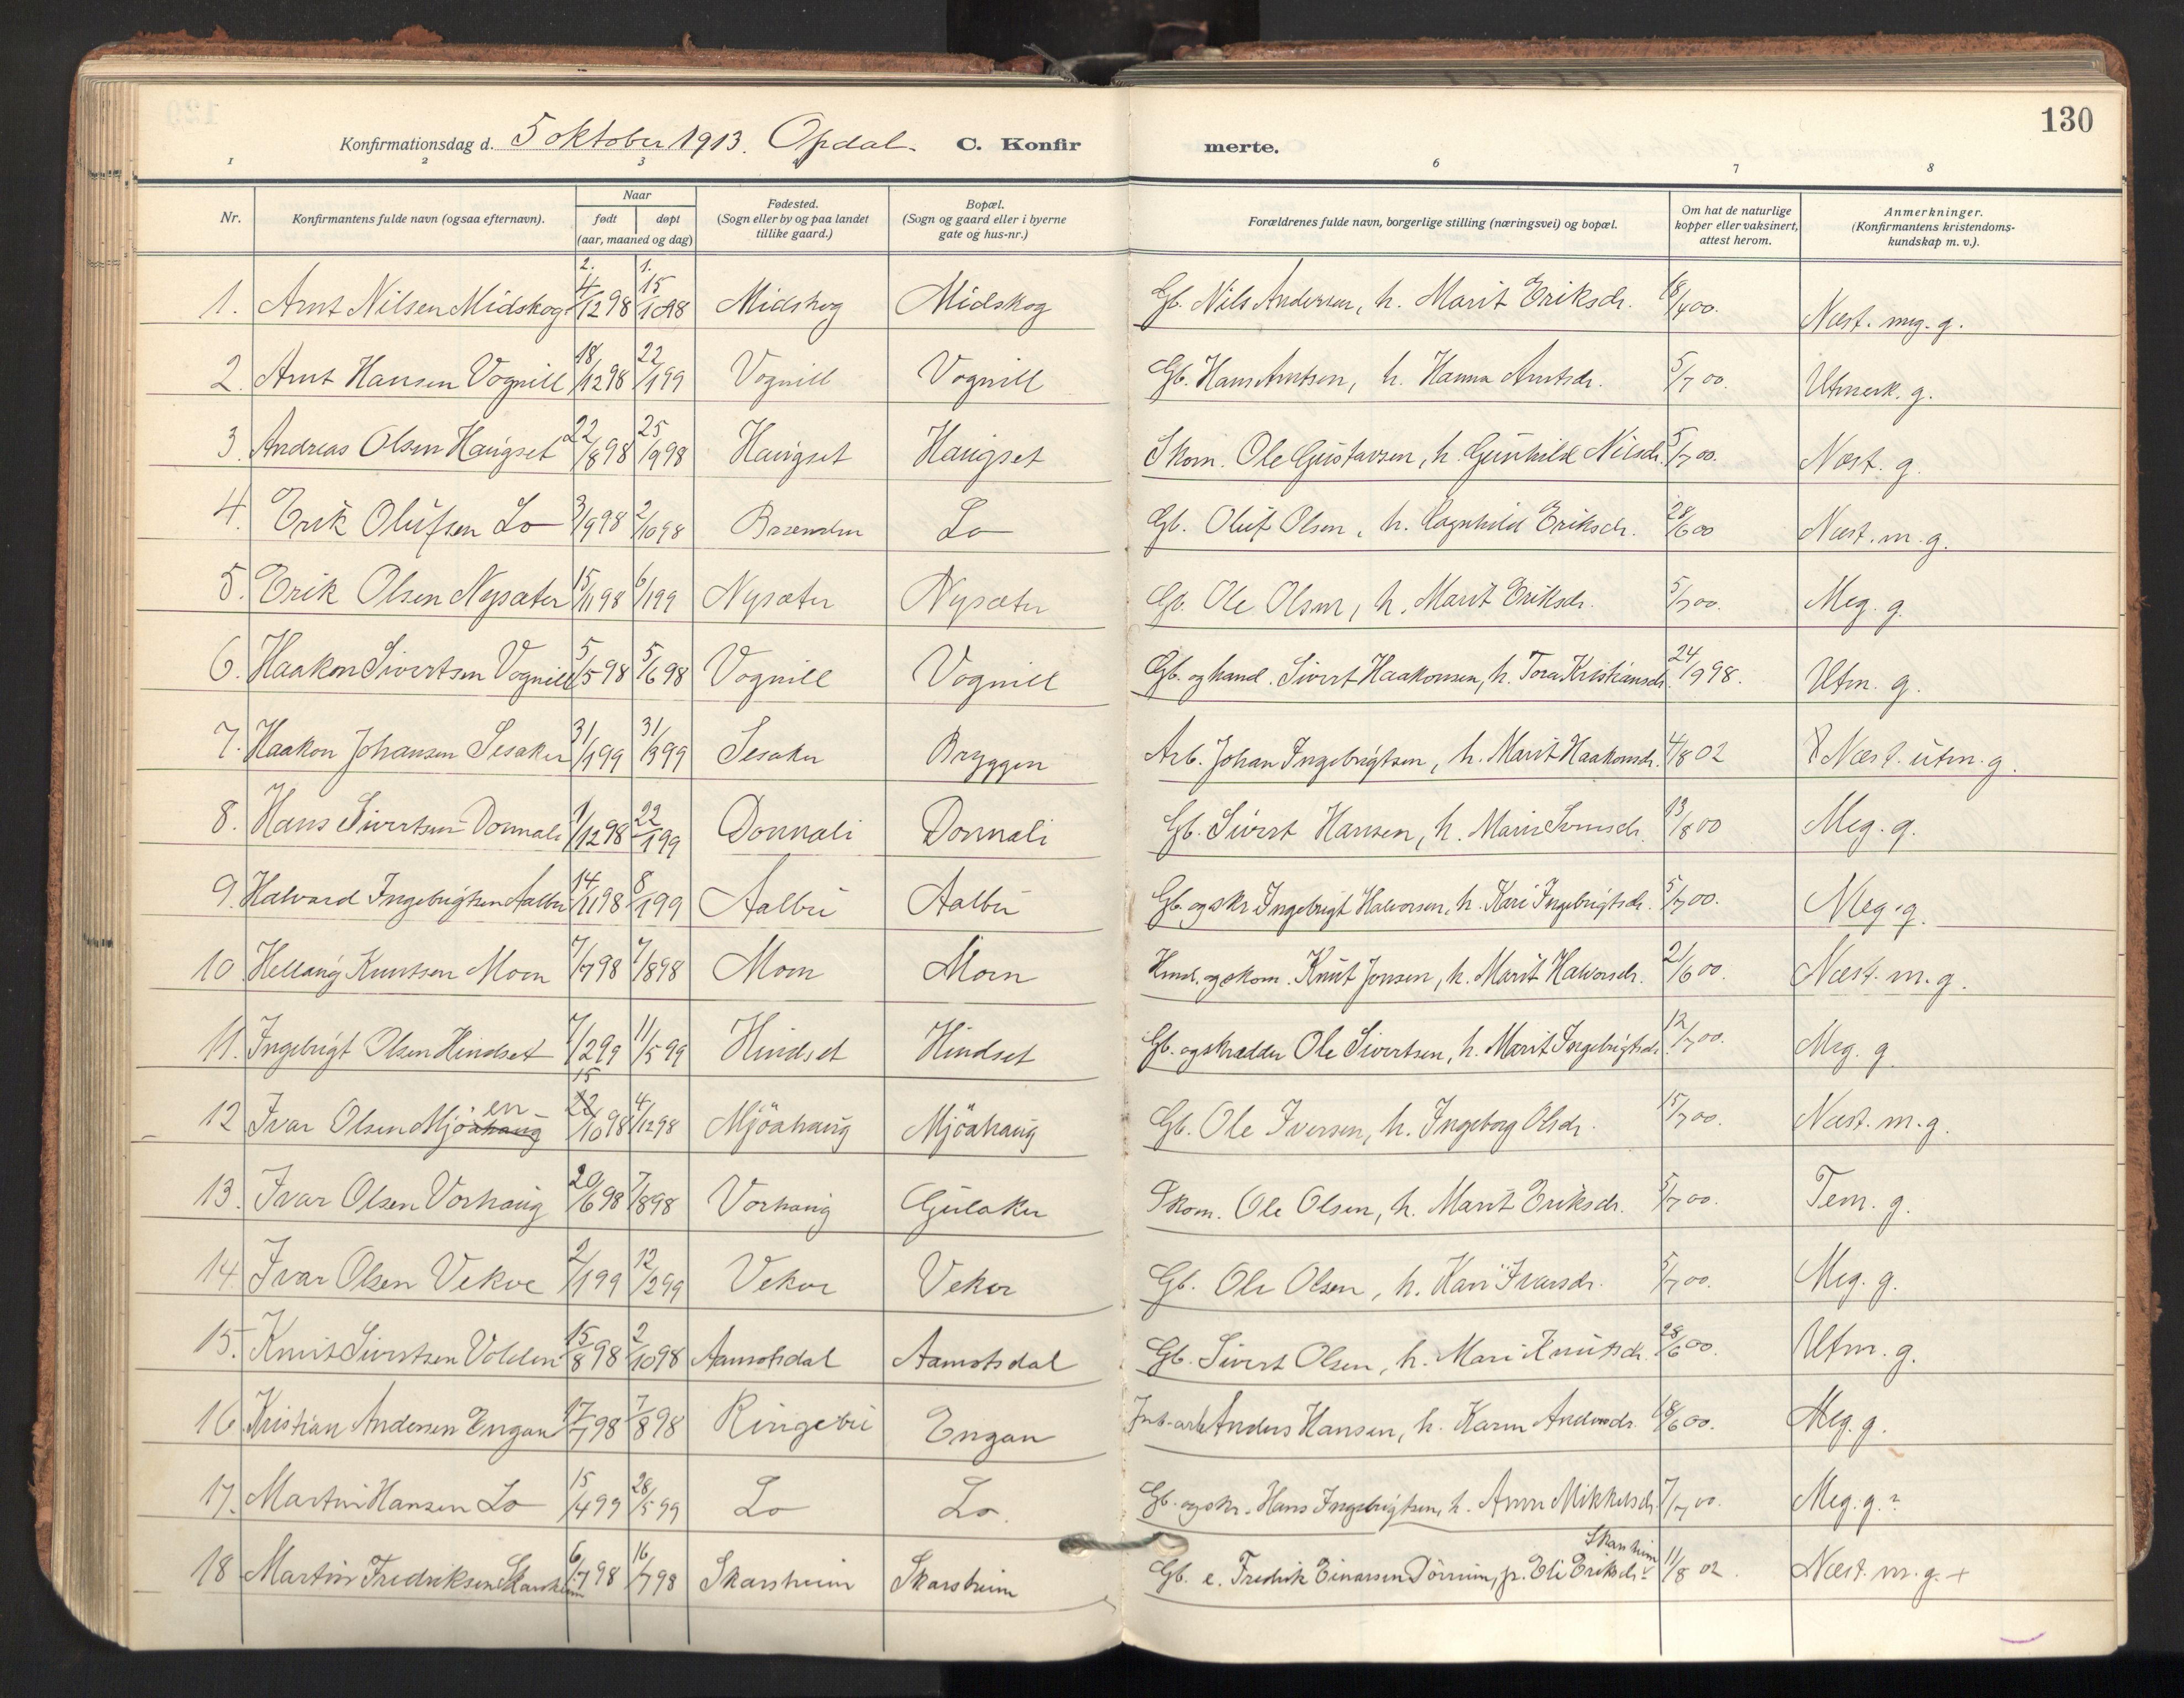 130
Konfirmationsdag d. 5 oktober 1913. Opdal. C. Konfir merte.
1 2 3 6 7 8
Nr. Konfirmantens fulde navn (ogsaa efternavn). Naar født døpt (aar, maaned og dag) Fødested. (Sogn eller by og paa landet tillike gaard.) Bopæl. (Sogn og gaard eller i byerne gate og hus-nr.) Forældrenes fulde navn, borgerlige stilling (næringsvei) og bopæl. Om hat de naturlige kopper eller vaksinert, attest herom. Anmerkninger. (Konfirmantens kristendoms-kundskap m. v.).
2. 1.
1. Arnt Nilsen Midskog 4/12 98 15/10 98 Midskog Midskog Gb. Nils Andersen, h. Marit Eriksdr. 18/4 00. Næst. meg. g.
2. Arnt Hansen Vognill 18/12 98 22/1 99 Vognill Vognill Gb. Hans Arntsen, h. Hanna Arntsdr. 5/7 00. Utmerk. g.
3. Andreas Olsen Haugset 22/8 98 25/9 98 Haugset Haugset Skom. Ole Gustavsen, h. Gunhild Nilsdr. 5/7 00. Næst. g.
4. Erik Olufsen Lo 3/9 98 2/10 98 Lo Gb. Oluf Olsen, h. Ragnhild Eriksdr. 28/6 00 Næst. m. g.
5. Erik Olsen Nysæter 15/11 98 6/1 99 Nysæter Nysæter Gb. Ole Olsen, h. Marit Eriksdr. 5/7 00. Meg. g.
6. Haakon Sivertsen Vognill 5/5 98 5/6 98 Vognill Vognill Gb. og hand. Sivert Haakonsen, h. Tora Kristiansdr. 24/9 98. Utm. g.
7. Haakon Johansen Sesaker 31/1 99 31/3 99 Sesaker Bryggen Arb. Johan Ingebrigtsen, h. Marit Haakonsdr. 4/8 02 Næst. utm. g.
8. Hans Sivertsen Donnali 1/12 98 22/1 99 Donnali Donnali Gb. Sivert Hansen, h. Mari 13/8 00 Meg. g.
9. Halvard Ingebrigtsen Aalbu 14/11 98 8/1 99 Aalbu Aalbu Gb. og skr. Ingebrigt Halvorsen, h. Kari Ingebrigtsdr. 5/7 00. Meg. g.
10 Hellaug Knutsen Moen 7/7 98 7/8 98 Moen Moen Hmd. og skom. Knut Jonsen, h. Marit Halvorsdr. 21/6 00. Næst. m. g.
11. Ingebrigt Olsen Hindset 7/2 99 11/5 99 Hindset Hindset Gb. og skrædder Ole Sivertsen, h. Marit Ingebrigtsdr. 12/7 00. Meg. g
12 Ivar Olsen Mjöahaug en 22 15/10 98 4/12 98 Mjöahaug Mjöahaug Gb. Ole Iversen, h. Ingeborg Olsdr. 15/7 00. Næst. m. g.
13. Ivar Olsen Vorhaug 20/6 98 7/8 98 Vorhaug Gulaker Skom. Ole Olsen, h. Marit Eriksdr. 5/7 00. Tem. g.
14. Ivar Olsen Vekve 2/1 99 12/2 99 Vekve Vekve Gb. Ole Olsen, h. Kari Ivarsdr. 5/7 00. Meg. g.
15. Knut Sivertsen Volden 15/8 98 2/10 98 Aamotsdal Aamotsdal Gb. Sivert Olsen, h. Mari Knutsdr. 28/6 00. Utm. g.
16 Kristian Andersen Engan 17/7 98 7/8 98 Ringebu Engan Anders Hansen, h. Karen Andersdr. 18/6 00. Meg. g.
17. Martin Hansen Lo 15/4 99 28/5 99 Lo Lo. Gb. og skr. Hans Ingebrigtsen, h. Anne Mikkelsdr. 7/7 00. Meg. g.?
18 Martin Fredriksen Skarsheim 6/7 98 16/7 98 Skarsheim Skarsheim Gb. e. Fredrik Einarsen Dörrum, p. Eli Eriksdr. Skarsheim 11/8 02. Næst. m. g. +